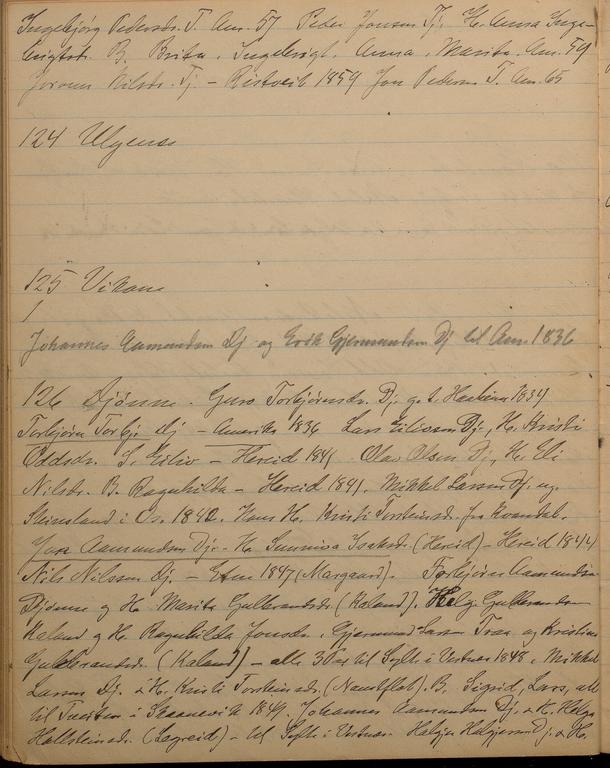 Ingebjørg Pedersdr. T. Am. 57 Peder Jonsen Tj. H. Anna Inge-
brigtsdr. B. Brita, Ingebrigt, Anna, Marita. Am. 59
Nilsdr. Tj - 1859 Jon Peders. T. Am. 65
124 Ulgenes
125 Vikane
1
Johannes Aamundsen Dj og Erik Gjermundsen Dj til Am. 1836
126 Djønne. Guro Torbjørnsdr. Dj. g. t. 1834
Torbjørn Torbj. Dj - Amerika 1836 Lars Eilivsen Dj, H. Kristi
Oddsdr. S. Eiliv - Hereid 1841 Olav Olsen Dj, H. Eli
Nilsdr. B. Ragnhilda - Hereid 1841. Mikkel Larsen Dj. ug.
i Os. 1842. Hans H. Kristi Torsteinsdr. fra Kvandal.
Jora Aamundsen Dj. - H. Sunniva Isaksdr. (Hereid) - Hereid 1844
Nils Nilssen Dj. - Etne 1847 (Margaard). Torbjørn Aamundsen
Djønne og H. Marita Gulbrandsdr. (Kaland). Helge Gulbrandsen
Kaland og H. Ragnhilda Jonsdr., Gjermund Larsen Traa og Kristina
Gulbrandsdr. (Kaland) - alle 3 Par til i 1848. Mikkel
Larsen Dj. & H. Kristi Torsteinsdr. (Naustflot). B. Sigrid, Lars, alle
til i Skaanevik 1849. Johannes Aamundsen Dj. & H. Helga
Hallsteinsdr. (Legreid) - til i Helgje Helgjesen Dj. & H.